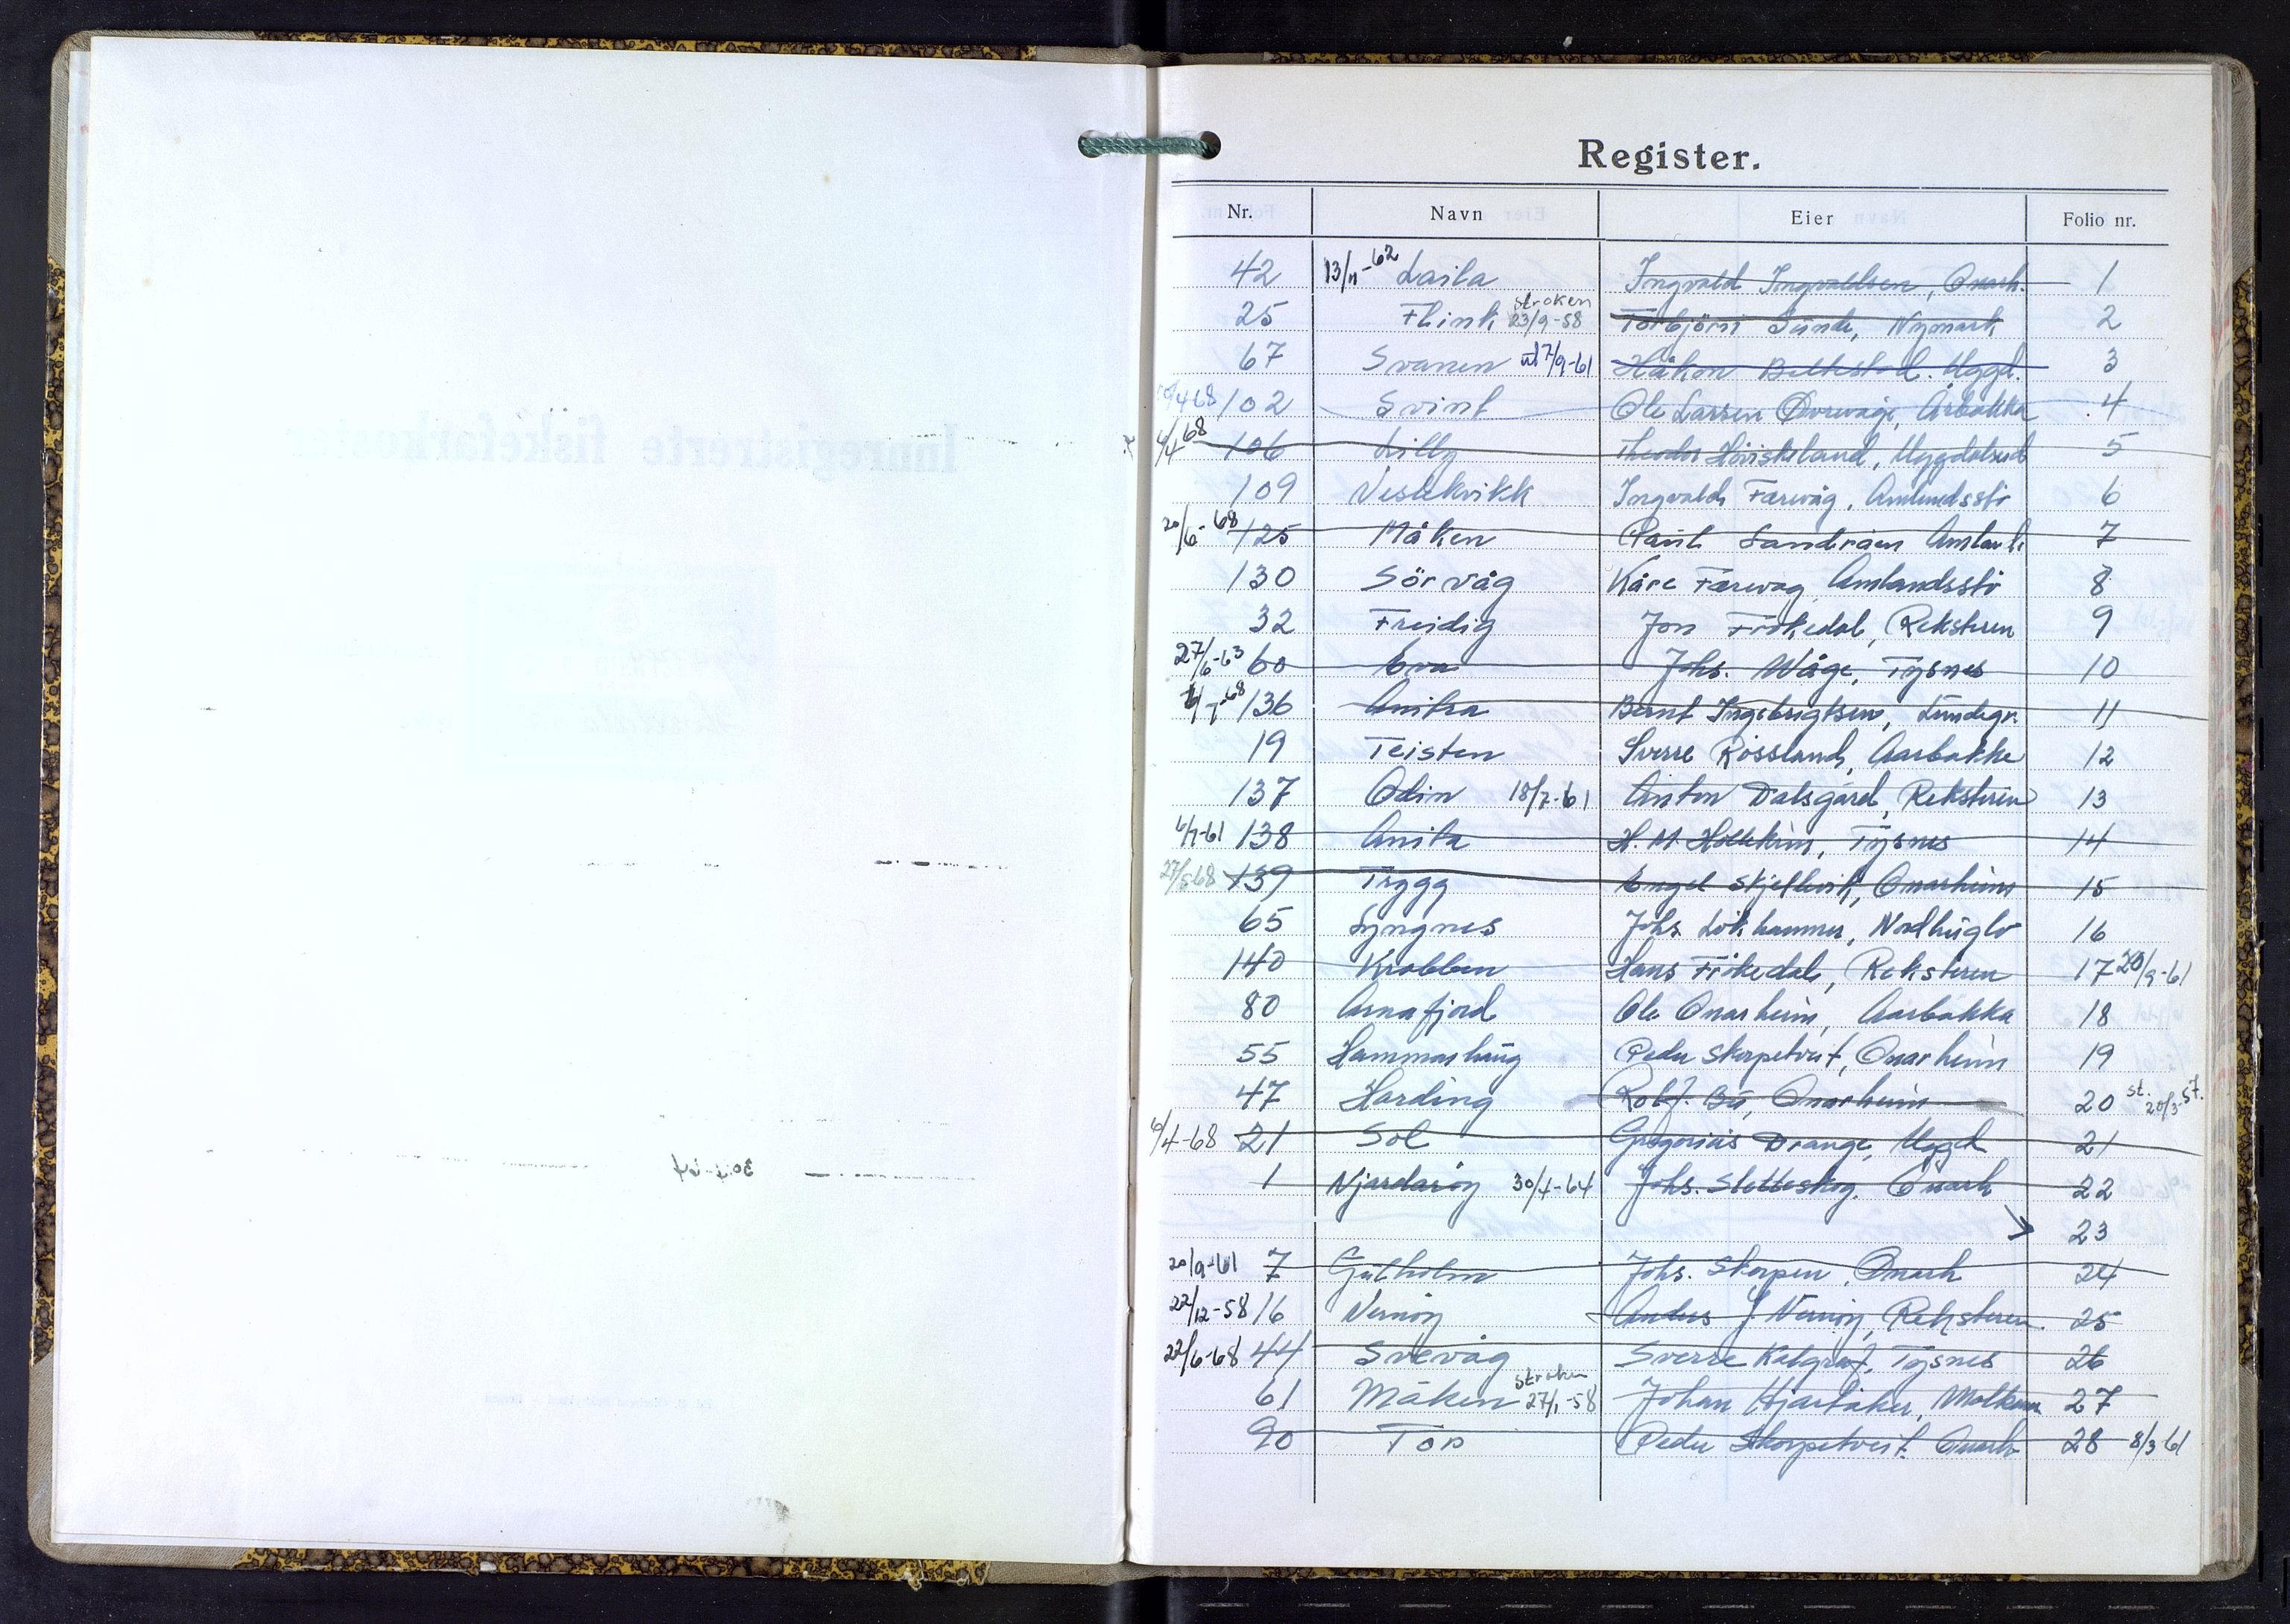 Register.
Nr. Navn Eier Folio nr.
42 13/11-62 Laila Ingvald Ingvaldsen, Onarh. 1
25 Flink stroken 23/9-58 Torbjörn Sunde, Nymark 2
67 Svanen ut 7/9-61 Håkon Beltestad. Uggd. 3
/4 68 102 Svint Ole Larsen Övrevåge, Årbakka 4
6/4 68 106 Lilly Theodor Höviskeland, Uggdalseid 5
109 Veslekvikk Ingvald Færevåg, Amlandsstö 6
20/6-68 125 Måken Paul Sandvaen 7
130 Sörvåg Kåre Færevåg Amlandsstö 8
32 Freidig Jon Frökedal, Reksteren 9
27/6-63 60 Eva Johs. Wåge, Tysnes 10
6/7-68 136 Anitra Bernt Ingebrigtsen, Lundegr. 11
19 Teisten Sverre Rossland, Aarbakke 12
137 Odin 18/7-61 Anton Dalsgård, Reksteren 13
6/7-61 138 Anita H. M. Tysnes 14
27/5-68 139 Trygg Engel Skjellevik, Onarheim 15
65 Lyngnes Johs. Lökhammer, Nordhuglo 16
140 Krabben Hans Frökedal, Reksteren 17 20/9-61
80 Arnafjord Ole Onarheim, Aarbakka 18
55 Hammarhaug Peder Skorpetveit, Onarheim 19
47 Harding Rolf. Bö, Onarheim 20 st. 20/3-57.
6/4-68 21 Sol Gregorius Drange, Uggd 21
1 Njardaröy 30/4-64 Johs. Sletteskog, Onarh 22
23
20/9-61 7 Gulholm Johs. Skorpen, Onarh 24
22/12-58 16 Vernöy Anders J. Vernöy, Reksteren. 25
22/6-68 44 Svevåg Sverre Kalgraf, Tysnes 26
61 Måken stroken 27/1-58 Johan Hjartåker, 27
90 Tor Peder Skorpetveit. Onarh 28 8/3 61
Innregistrerte fiskefarkoster
30/4-64